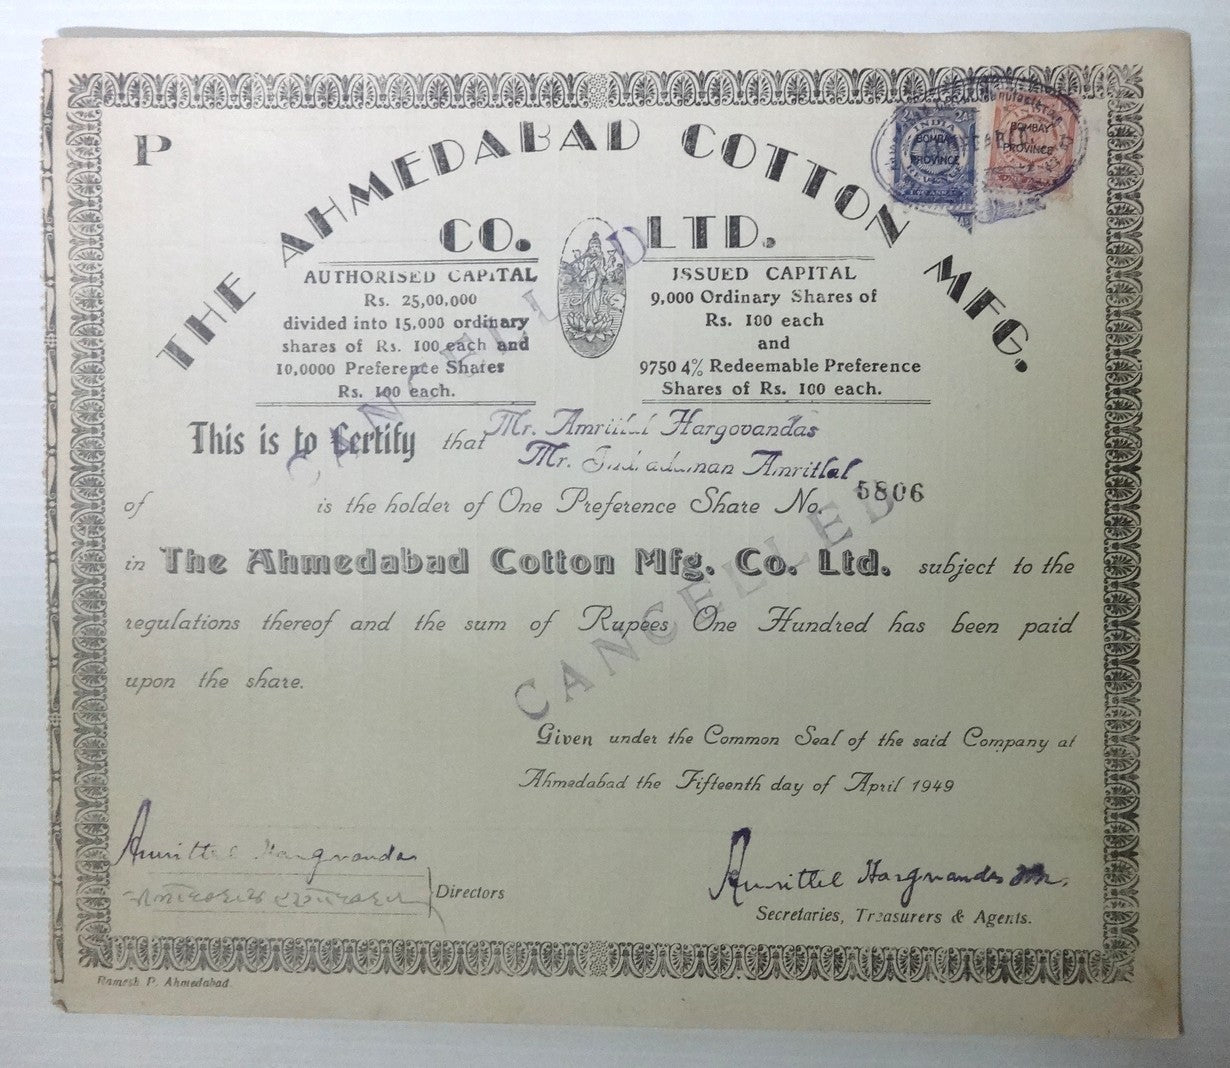 P
THE AHMEDABAD COTTON MFG.
CO. LTD.
INDIA
BOMBAY PROVINCE
BOMBAY PROVINCE
AUTHORISED CAPITAL
Rs. 25,00,000
divided into 15,000 ordinary
shares of Rs. 100 each and
10,0000 Preference Shares
Rs. 100 each.
ISSUED CAPITAL
9,000 Ordinary Shares of
Rs. 100 each
and
9750 4% Redeemable Preference
Shares of Rs. 100 each.
CANCELLED
This is to Certify that Mr. Amritlal Hargovandas
Mr. Amritlal
of is the holder of One Preference Share No. 5806
in The Ahmedabad Cotton Mfg. Co. Ltd. subject to the
regulations thereof and the sum of Rupees One Hundred has been paid
upon the share.
CANCELLED
Given under the Common Seal of the said Company at
Ahmedabad the Fifteenth day of April 1949
Amritlal Hargovandas
Directors
Amritlal Hargovandas
Secretaries, Treasurers & Agents.
Ramesh P. Ahmedabad